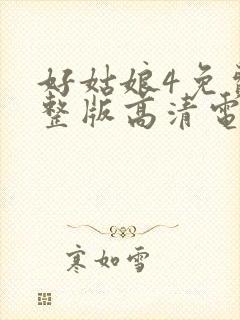 好姑娘4免
整版高清电
寒如雪